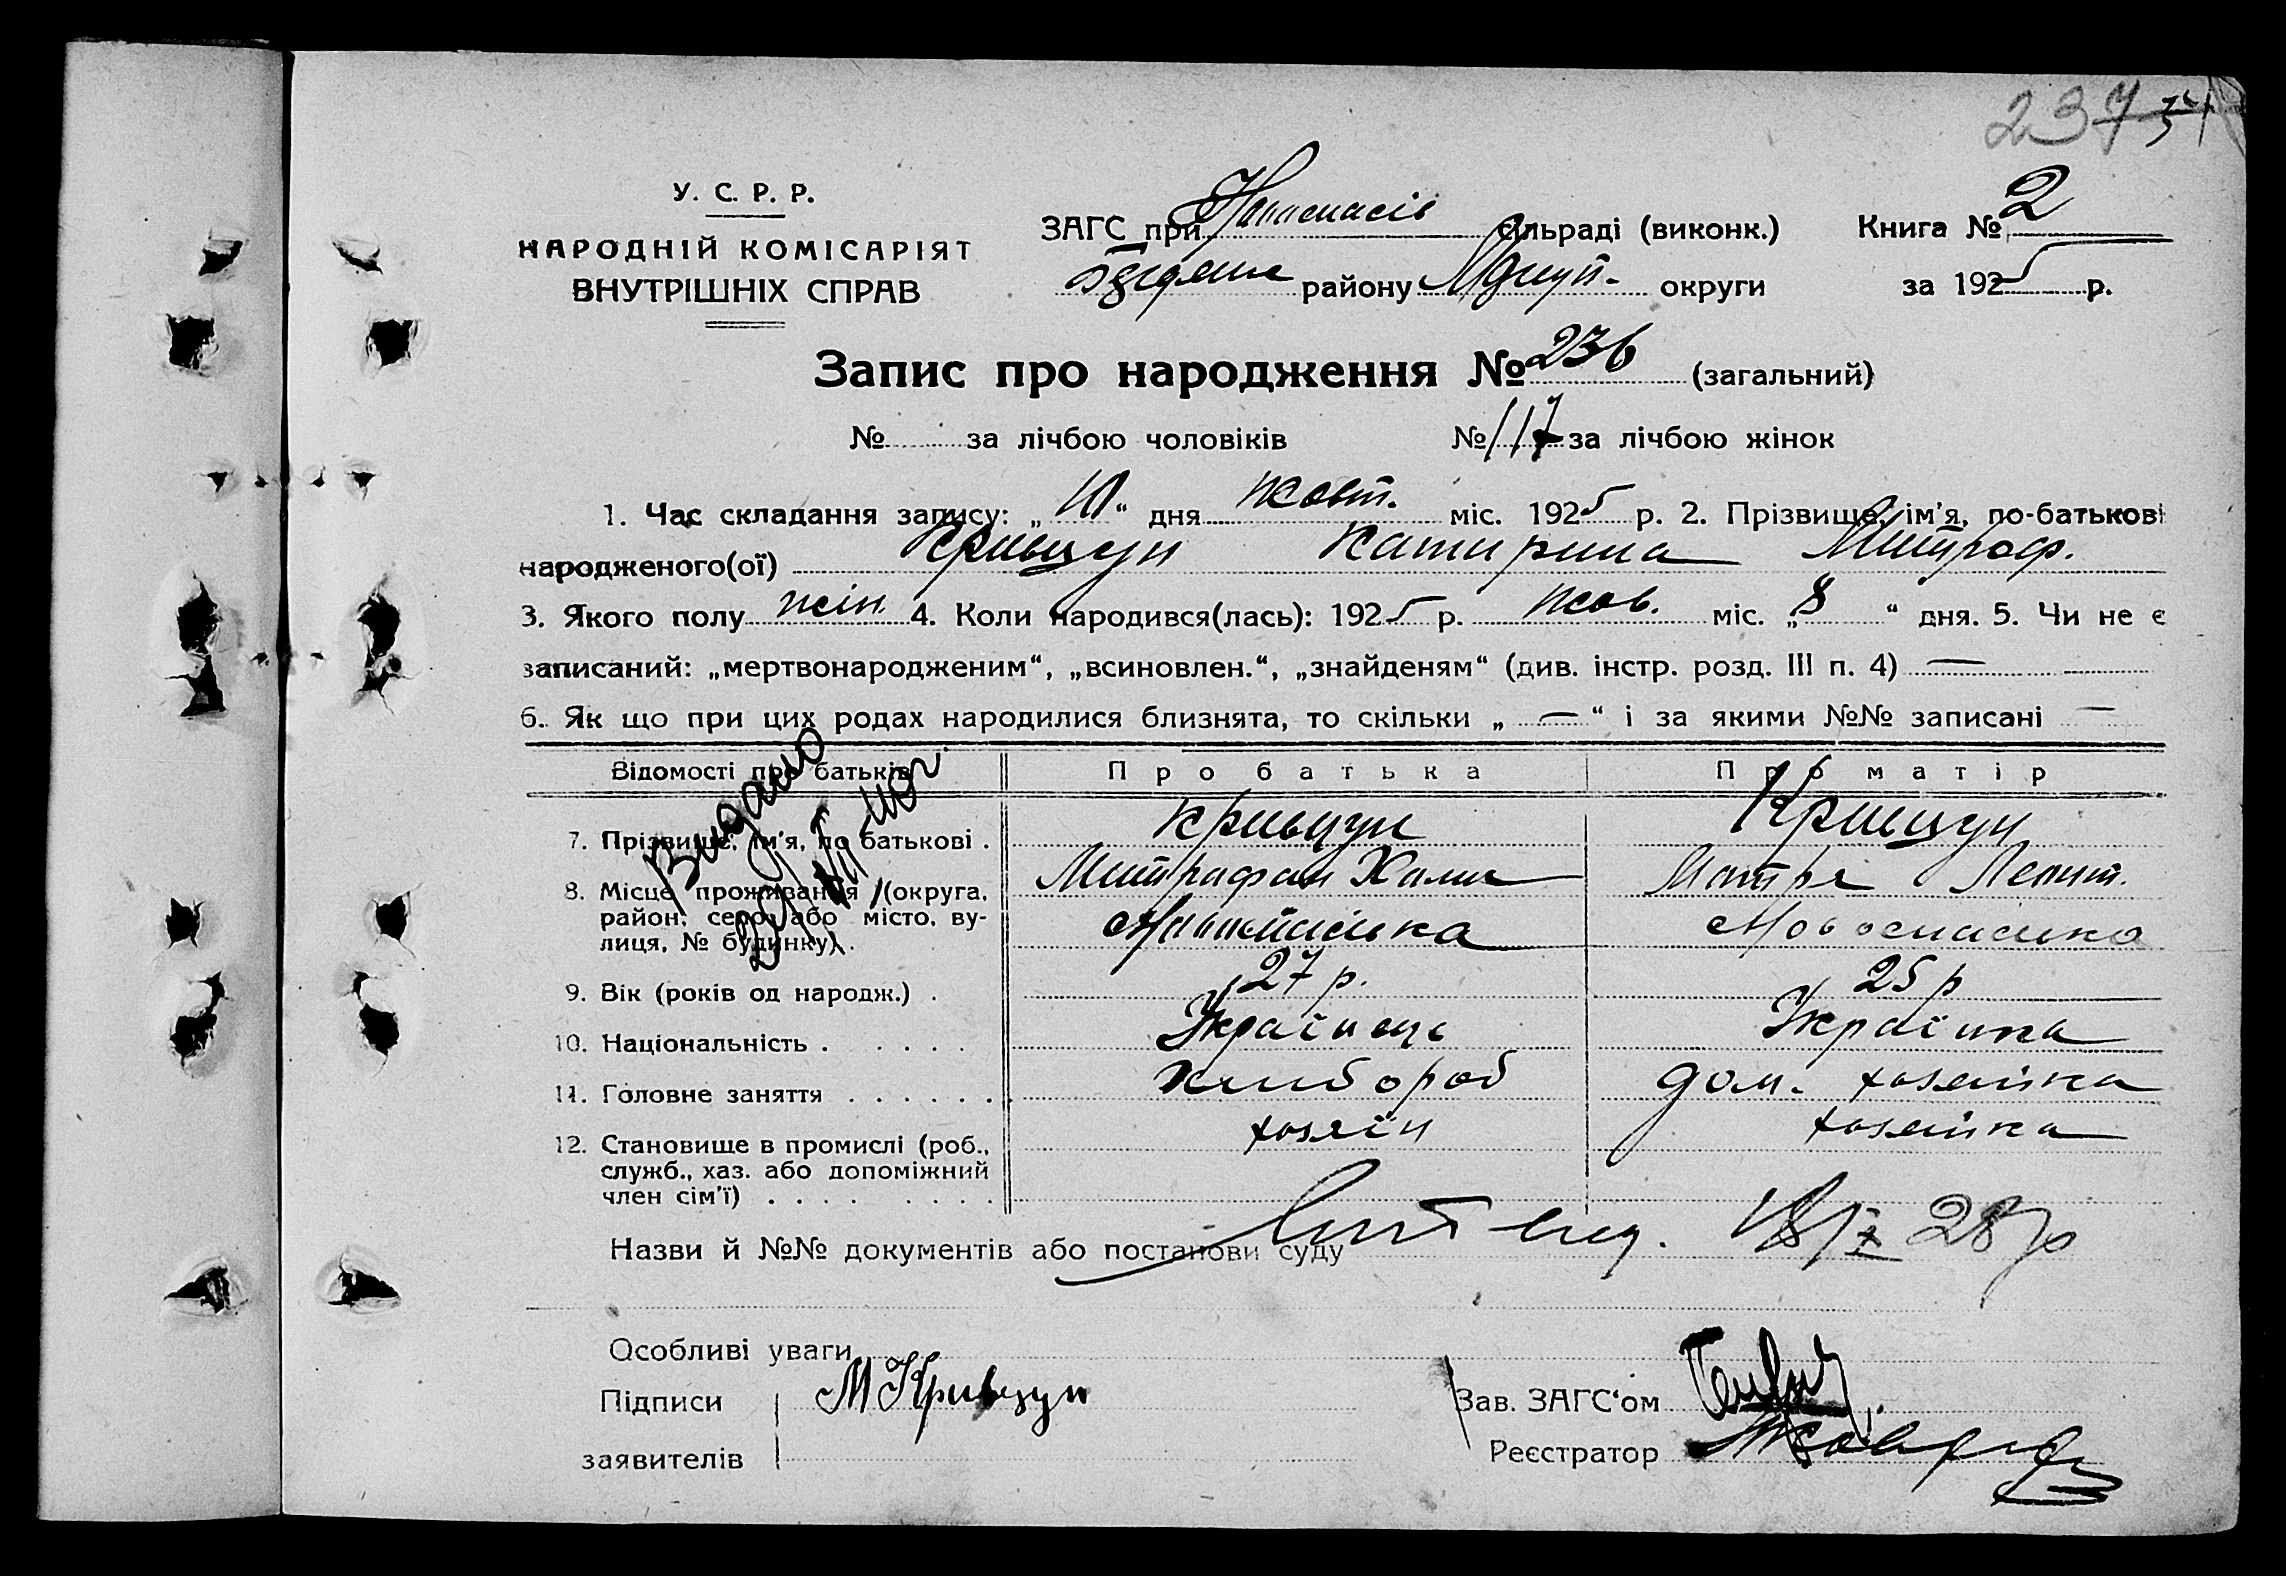 237
У. С. Р. Р.
НАРОДНІЙ КОМІСАРІЯТ
ВНУТРІШНІХ СПРАВ
ЗАГС при сільраді (виконк.) Книга № 2
району округи за 1925 р.
Запис про народження № 236 (загальний)
№ за лічбою чоловіків № 117 за лічбою жінок
1. Час складання запису: „ “ дня жовт. міс. 1925 р. 2. Прізвище, ім'я, по-батькові
народженого(ої) Кривцун Катирина Митроф.
3. Якого полу жін. 4. Коли народився(лась): 1925 р. жов. міс. „8“ дня. 5. Чи не є
записаний: „мертвонародженим“, „всиновлен.“, „знайденям“ (див. інстр. розд. III п. 4) —
6. Як що при цих родах народилися близнята, то скільки „ — “ і за якими №№ записані —
Відомості про батьків Про батька Про матір
7. Прізвище, ім'я, по батькові . Кривцун Кривцун
Митрафан Мотря Леонт.
8. Місце проживання (округа,
район, село, або місто, ву-
лиця, № будинку) . Новоспасівка Новоспасівка
Видано
9. Вік (років од народж.) . 27 р. 25 р
10. Національність . . . . . Українець Українка
11. Головне заняття . . . . . . . Хлибороб дом. хозяйка
12. Становище в промислі (роб.,
служб., хаз. або допоміжний
член сім'ї) . . . . . . . . хозяїн хозяйка
Назви й №№ документів або постанови суду 18/X 28 р
Особливі уваги
Підписи М Кривцун Зав. ЗАГС'ом
заявителів Реєстратор